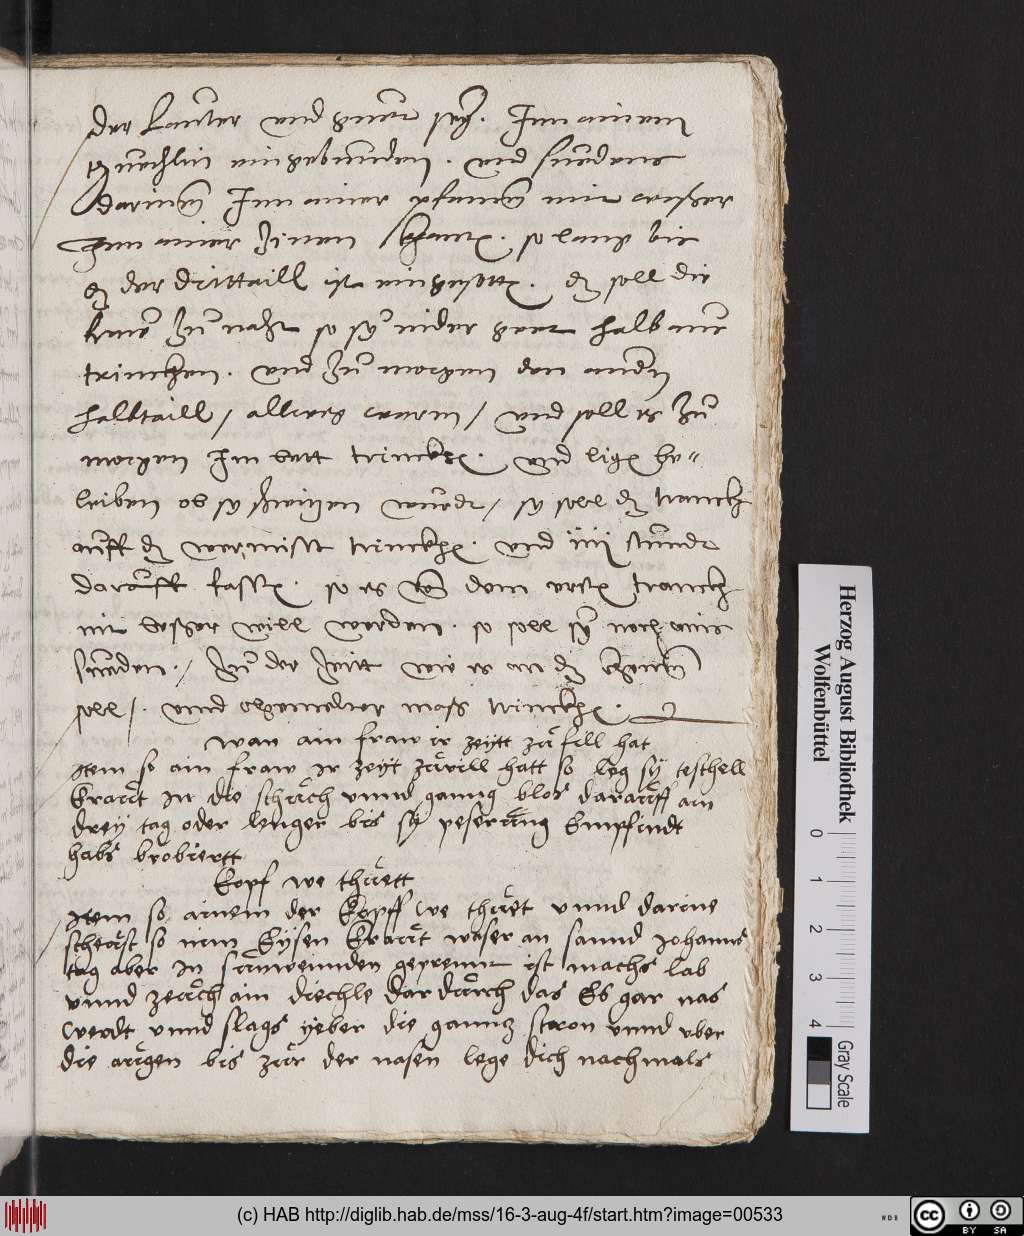 der lautter vnd guett sey. Inn ainem
tuechlin eingebunden. vnd sieden
darinn Inn ainer pfannen mit
ainer Zinen so lang bis
der drittaill ist eingesotten. soll die
Zu nacht so sy nider geett halb
trincken. vnd Zu morgen den andern
halbtaill / allweg warm / vnd soll es Zu
morgen Im bett trincken. vnd ligen be=
leiben ob sy schwitzen wurde / sy soll dz tranckh
auff dz trinckhen. vnd iiij stunde
darauff fasten. so es dem ersten tranckh
nit besser will werden. so soll sy noch ains
sieden. / Zu der Zeitt wie es an dz
soll /. vnnd mass trinckhen.
wan ain fraw ir zeytt zu fill hat
Item so ain fraw ir zeyt zuvill hatt so leg sy teschell
kraut in die schuch vnnd ganng blos darauff ain
drey tag oder lenger bis sy peserung Empfindt
habs brobiertt
kopf we thuett
Item so ainem der kopff we thuet vnnd darine
so nim Eysen kraut waser an sannd Johanns
tag aber in sunweinnden geprennt ist machs lab
vnnd zeuch ain diechle dardurch das Es gar nas
werdt vnnd slags yeber die ganntz stieren vnnd vber
die augen bis zur der nasen lege dich nachmals
Herzog August Bibliothek
Wolfenbüttel
0 1 2 3 4
Gray Scale
(c) HAB http://diglib.hab.de/mss/16-3-aug-4f/start.htm?image=00533
WDB
cc
BY SA